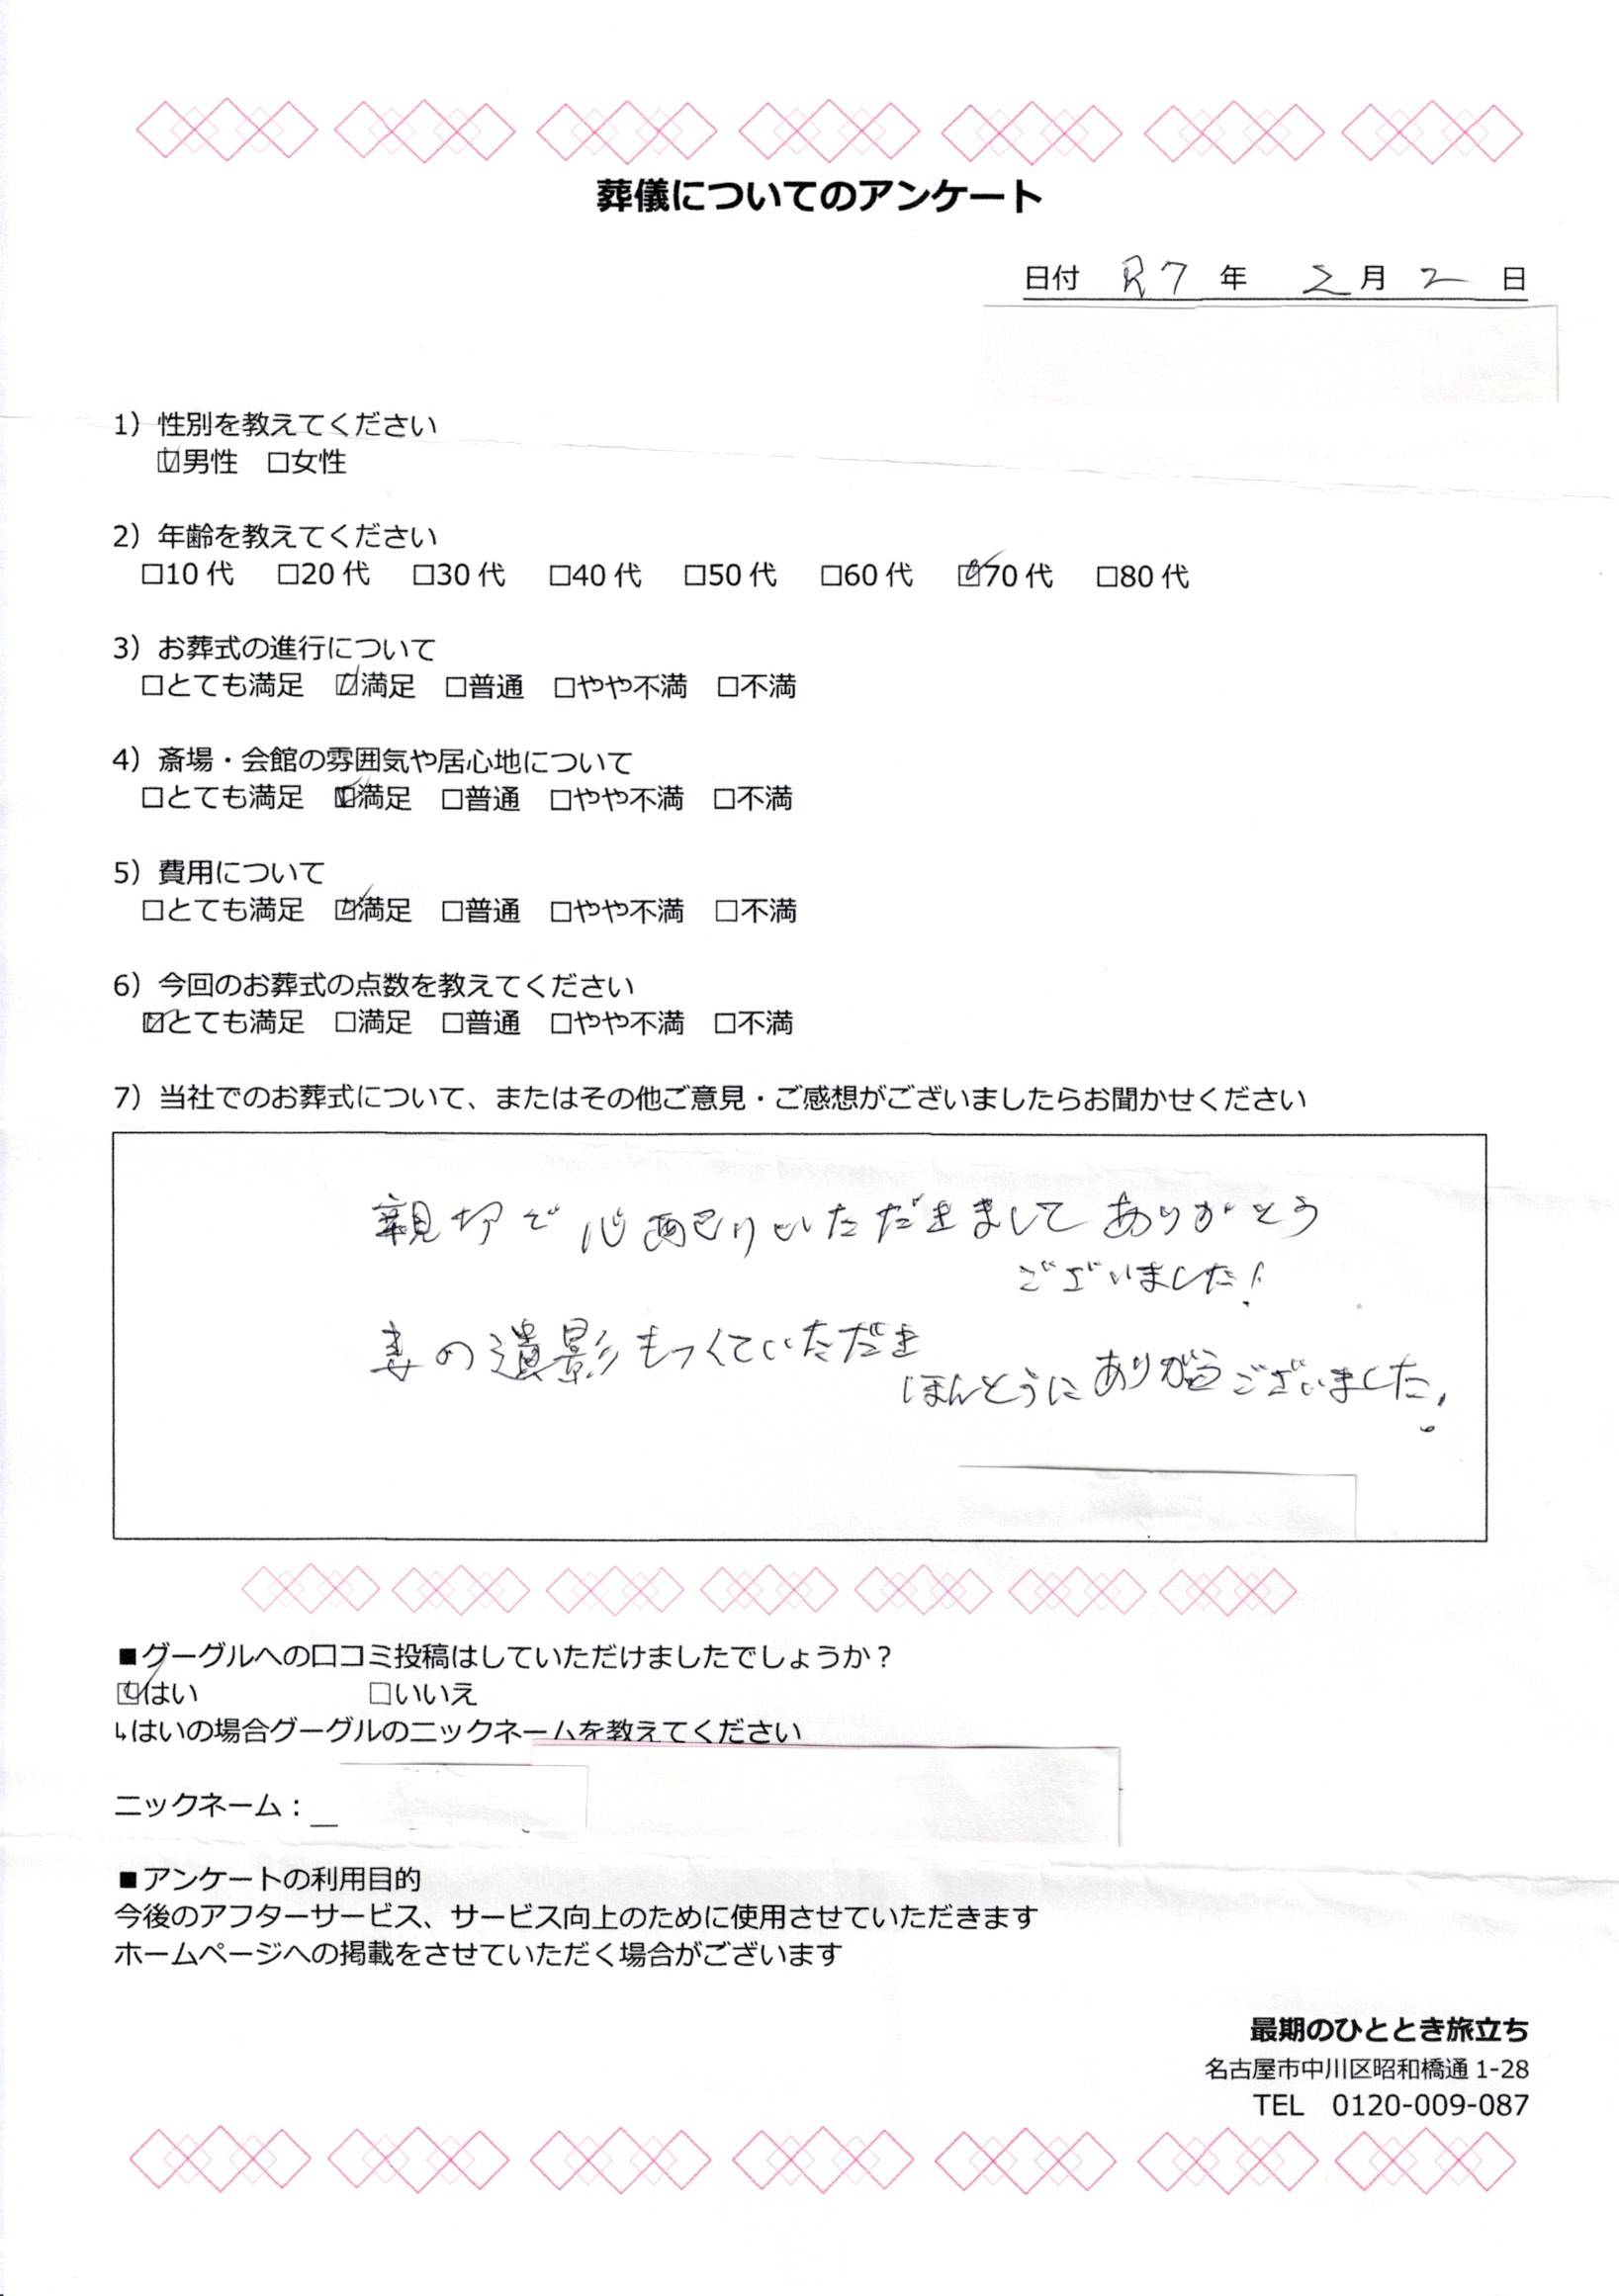 葬儀についてのアンケート
日付 R7 年 2 月 2 日
1）性別を教えてください
☑男性 □女性
2）年齢を教えてください
□10 代 □20 代 □30 代 □40 代 □50 代 □60 代 ☑70 代 □80 代
3）お葬式の進行について
□とても満足 ☑満足 □普通 □やや不満 □不満
4）斎場・会館の雰囲気や居心地について
□とても満足 ☑満足 □普通 □やや不満 □不満
5）費用について
□とても満足 ☑満足 □普通 □やや不満 □不満
6）今回のお葬式の点数を教えてください
☑とても満足 □満足 □普通 □やや不満 □不満
7）当社でのお葬式について、またはその他ご意見・ご感想がございましたらお聞かせください
親切で心配りいただきまして ありがとう
ございました!
妻の遺影もつくていただき
ほんとうに ありがとう ございました!
■グーグルへの口コミ投稿はしていただけましたでしょうか？
☑はい □いいえ
↳はいの場合グーグルのニックネームを教えてください
ニックネーム：
■アンケートの利用目的
今後のアフターサービス、サービス向上のために使用させていただきます
ホームページへの掲載をさせていただく場合がございます
最期のひととき旅立ち
名古屋市中川区昭和橋通 1-28
TEL 0120-009-087